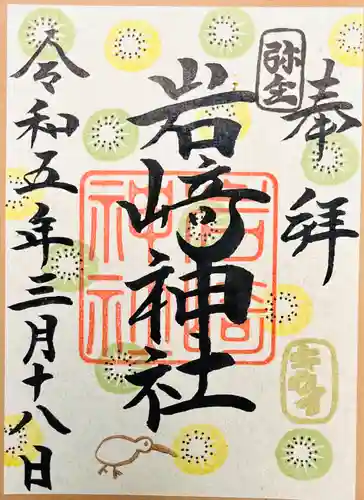 奉拝
弥生
岩﨑神社
岩﨑神社
キウイ
令和五年三月十八日